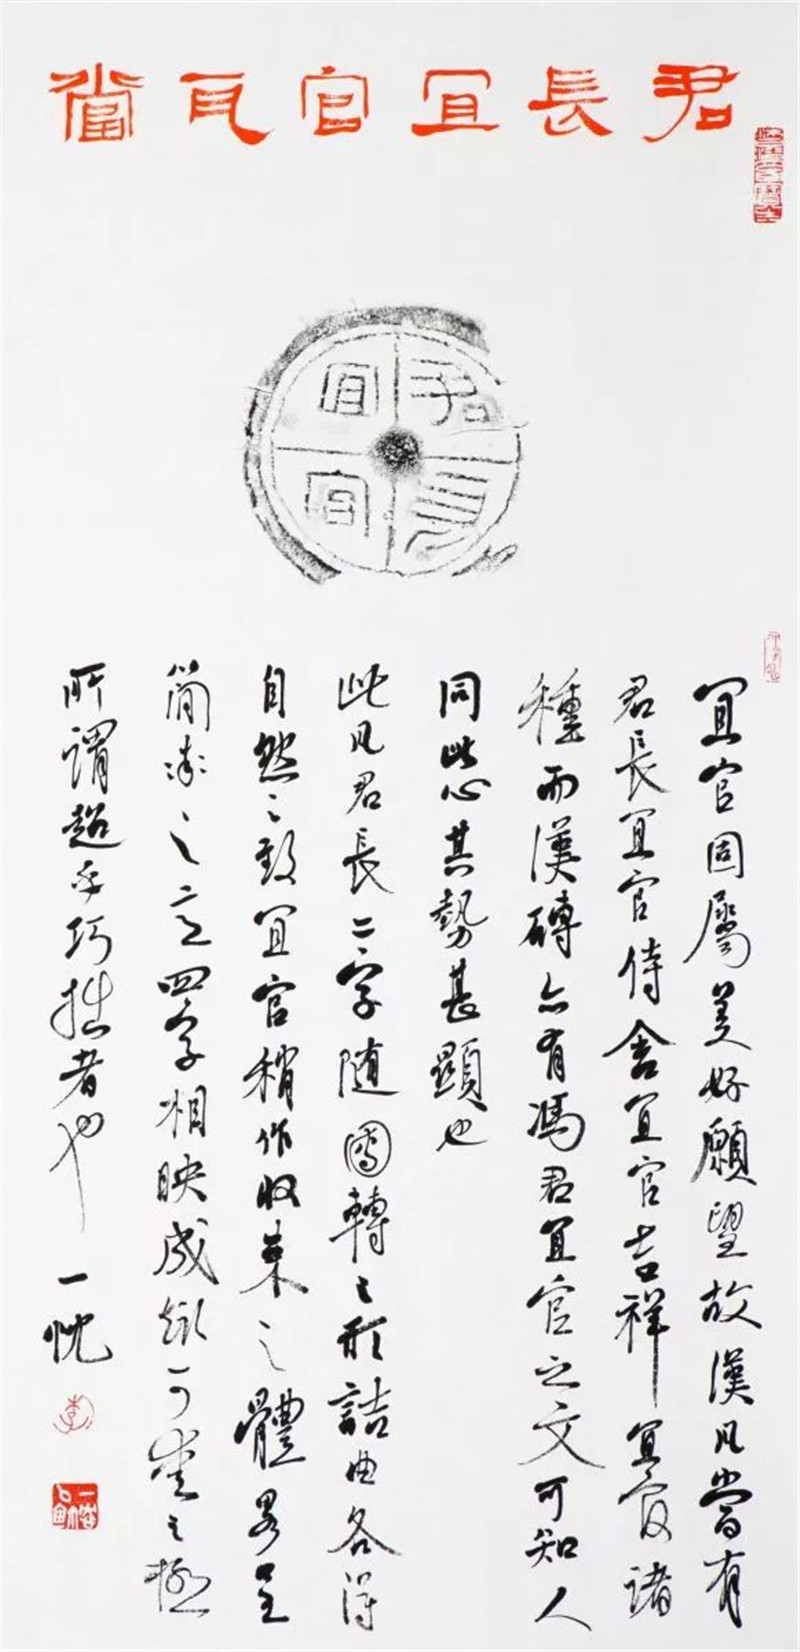 君長宜官瓦當
君長
宜官
宜官固屬美好願望故漢瓦當有
君長宜官侍舍宜官吉祥宜官諸
種而漢磚亦有馮君宜官之文可知人
同此心其勢甚顯也
此瓦君長二字随圓轉之形詰曲各得
自然之致宜官稍作收束之體畧呈
簡率之意四字相映成趣可愛之極
所謂超乎巧拙者也 一忱
李